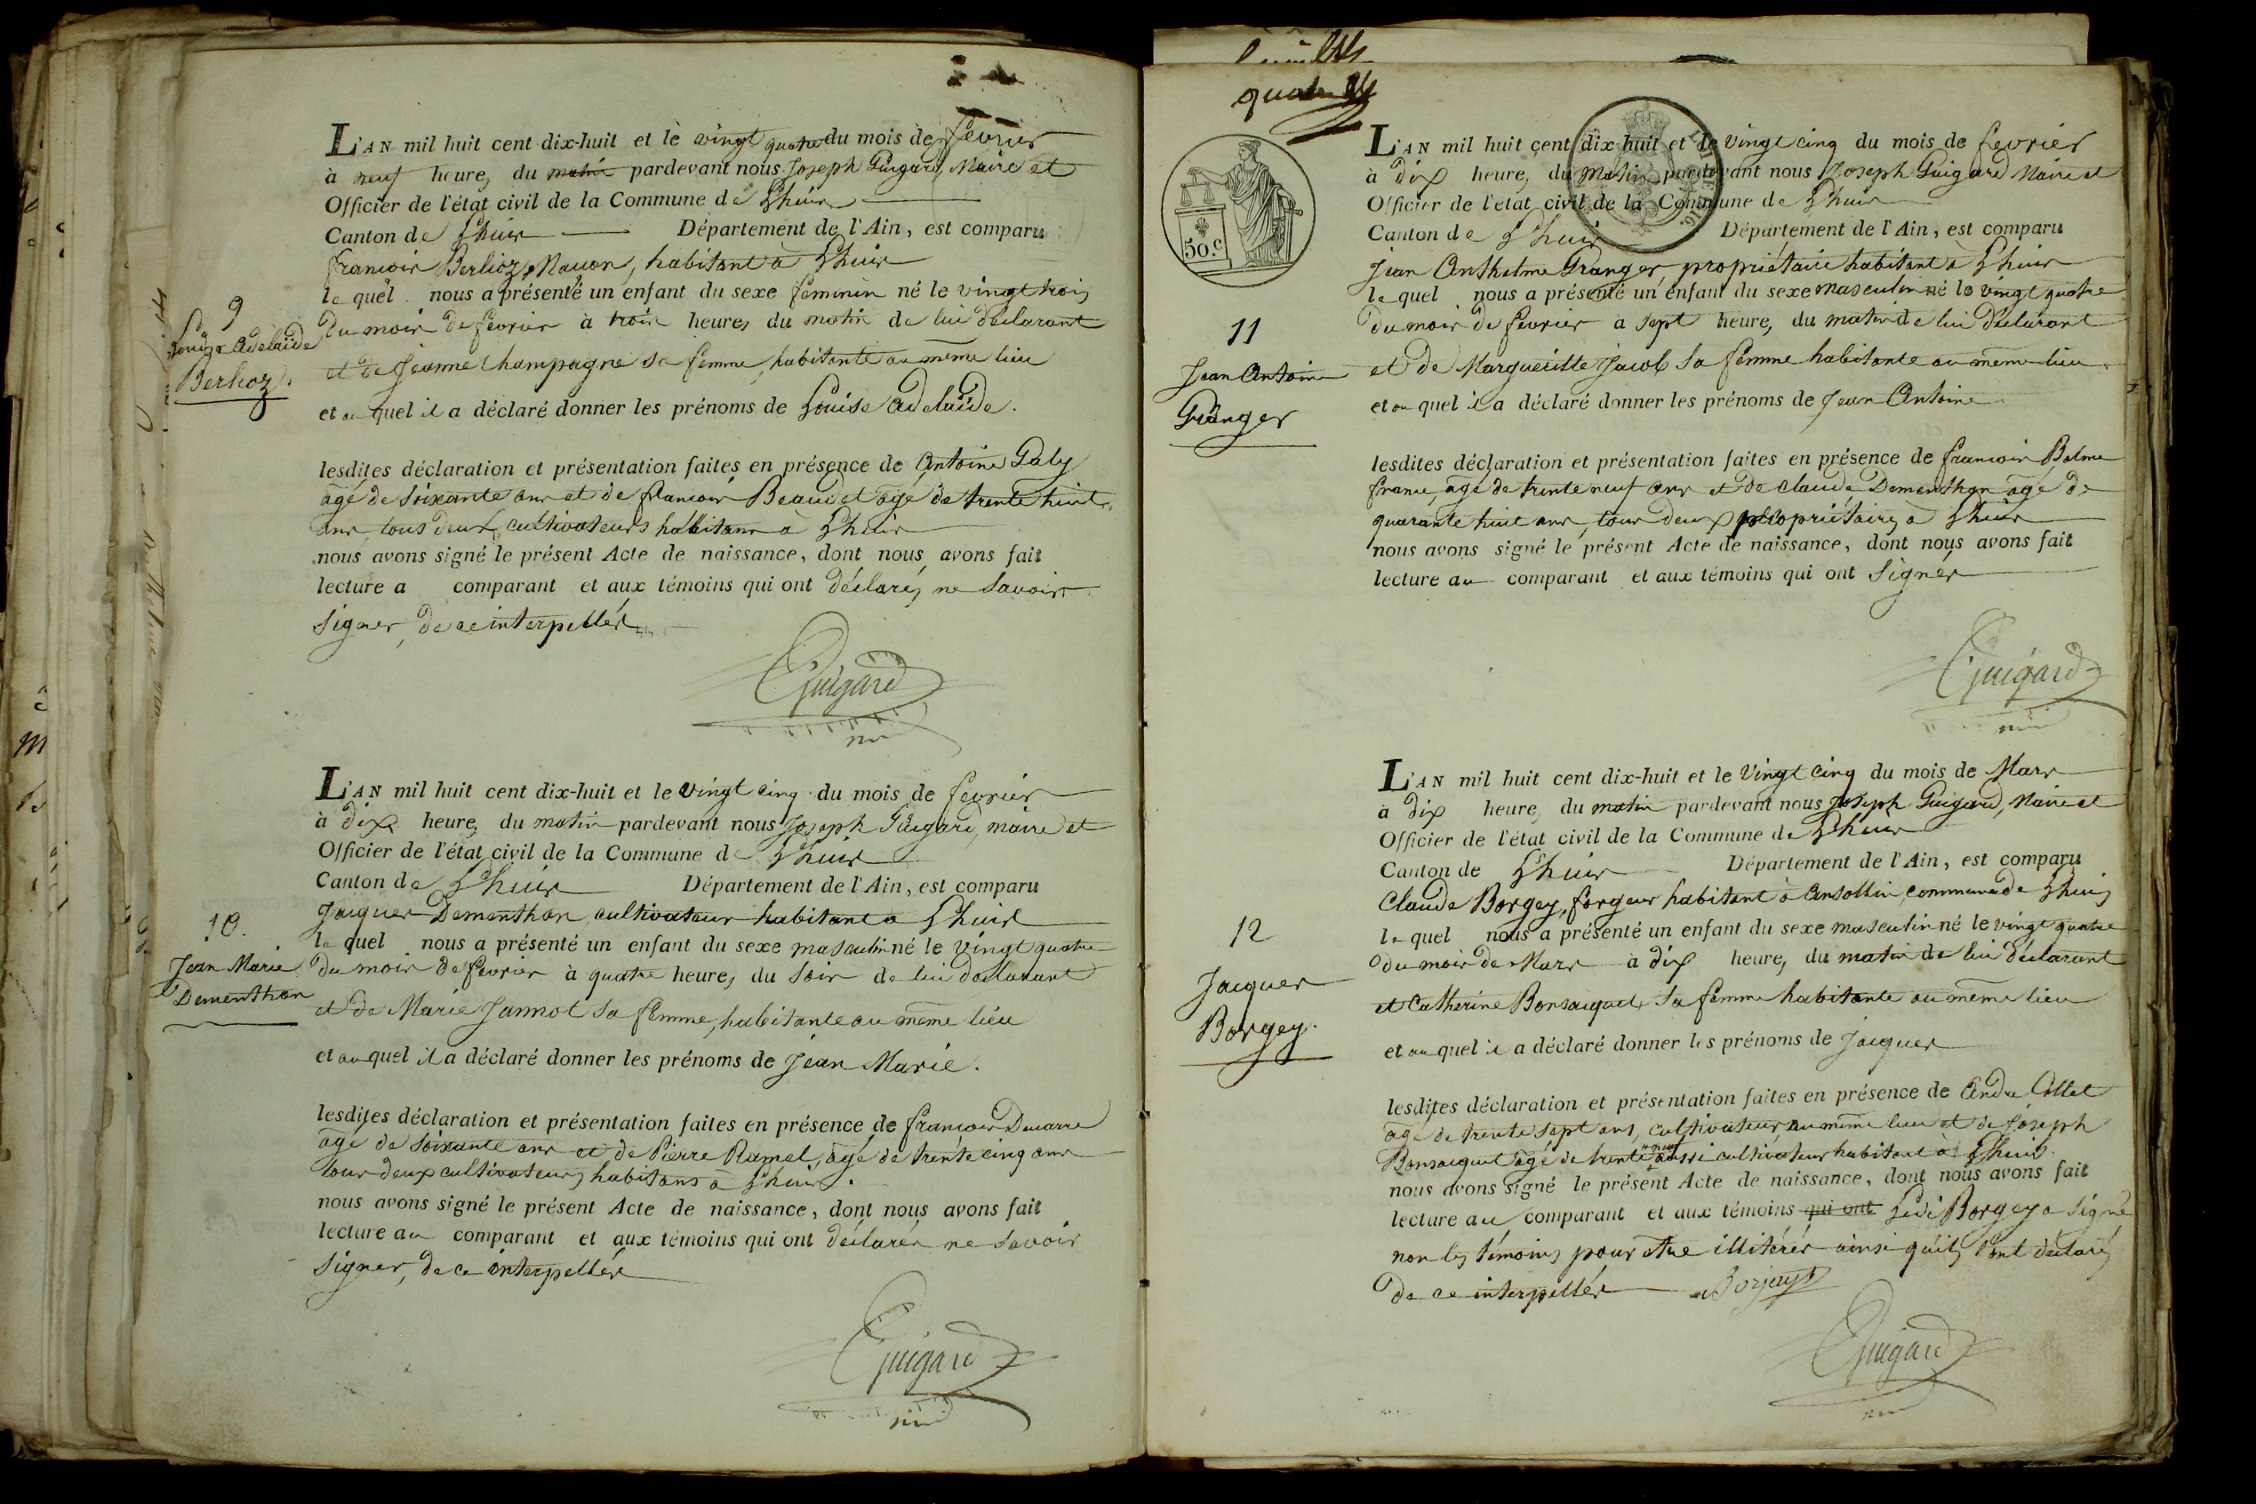 L'AN mil huit cent dix-huit et le vingt quatre du mois de fevrier
à neuf heures du matin pardevant nous Joseph Guigard, Maire et
Officier de l'état civil de la Commune de Lhuis
Canton de Lhuis Département de l'Ain, est comparu
francois Berlioz, Macon, habitant à Lhuis
le quel nous a présenté un enfant du sexe feminin né le vingt trois
du mois de fevrier à trois heures du matin de lui déclarant
et de Jeanne Champagne sa femme, habitante au même lieu
et au quel il a déclaré donner les prénoms de Louise Adelaïde.
9
Louise Adelaïde
Berlioz.
lesdites déclaration et présentation faites en présence de Antoine Galy
âgé de soixante ans et de francois Beaudet âgé de trente huit
ans, tous deux cultivateurs habitans à Lhuis
nous avons signé le présent Acte de naissance, dont nous avons fait
lecture a comparant et aux témoins qui ont déclarés ne savoir
signer, de ce interpellés
Guigard
L'AN mil huit cent dix-huit et le vingt cinq du mois de fevrier
à dix heures du matin pardevant nous Joseph Guigard, maire et
Officier de l'état civil de la Commune de Lhuis
Canton de Lhuis Département de l'Ain, est comparu
Jacques Dementhon cultivateur habitant a Lhuis
le quel nous a présenté un enfant du sexe masculin né le vingt quatre
du mois de fevrier à quatre heures du soir de lui déclarant
et de Marie Jannot sa femme, habitante au même lieu
et au quel il a déclaré donner les prénoms de Jean Marie.
10.
Jean Marie
Dementhon
lesdites déclaration et présentation faites en présence de francois Ducarre
âgé de soixante ans et de Pierre Ramel, âgé de trente cinq ans
tous deux cultivateurs habitans a Lhuis.
nous avons signé le présent Acte de naissance, dont nous avons fait
lecture au comparant et aux témoins qui ont déclarés ne savoir
signer, de ce interpellés
Guigard
quatre
50.c
L'AN mil huit cent dix-huit et le vingt cinq du mois de fevrier
à dix heures du matin pardevant nous Joseph Guigard Maire et
Officier de l'état civil de la Commune de Lhuis
Canton de Lhuis Département de l'Ain, est comparu
Jean Anthelme Granger, propriétaire habitant à Lhuis
le quel nous a présenté un enfant du sexe masculin né le vingt quatre
du mois de fevrier a sept heures du matin de lui déclarant
et de Margueritte Jacob sa femme habitante au même lieu
et au quel il a déclaré donner les prénoms de Jean Antoine
11
Jean Antoine
Granger
lesdites déclaration et présentation faites en présence de francois Balme
france, âgé de trente neuf ans et de claude Dementhon âgé de
quarante huit ans, tous deux propriétaires à Lhuis
nous avons signé le présent Acte de naissance, dont nous avons fait
lecture au comparant et aux témoins qui ont signés
Guigard
L'AN mil huit cent dix-huit et le vingt cinq du mois de Mars
à dix heures du matin pardevant nous Joseph Guigard, Maire et
Officier de l'état civil de la Commune de Lhuis
Canton de Lhuis Département de l'Ain, est comparu
Claude Borgey, forgeur habitant à Ansollin, commune de Lhuis
le quel nous a présenté un enfant du sexe masculin né le vingt quatre
du mois de Mars à dix heures du matin de lui déclarant
et Catherine Bonsacquet, sa femme habitante au même lieu
et au quel il a déclaré donner les prénoms de Jacques
12
Jacques
Borgey.
lesdites déclaration et présentation faites en présence de André Collet
âgé de trente sept ans, cultivateur au même lieu et de Joseph
Bonsacquet âgé de trente aussi cultivateur habitant à Lhuis.
nous avons signé le présent Acte de naissance, dont nous avons fait
lecture au comparant et aux témoins qui ont Ledi Borgey a signé
non les témoins pour être illitérés ainsi qu'ils l'ont déclarés
de ce interpellés Borjey
Guigard